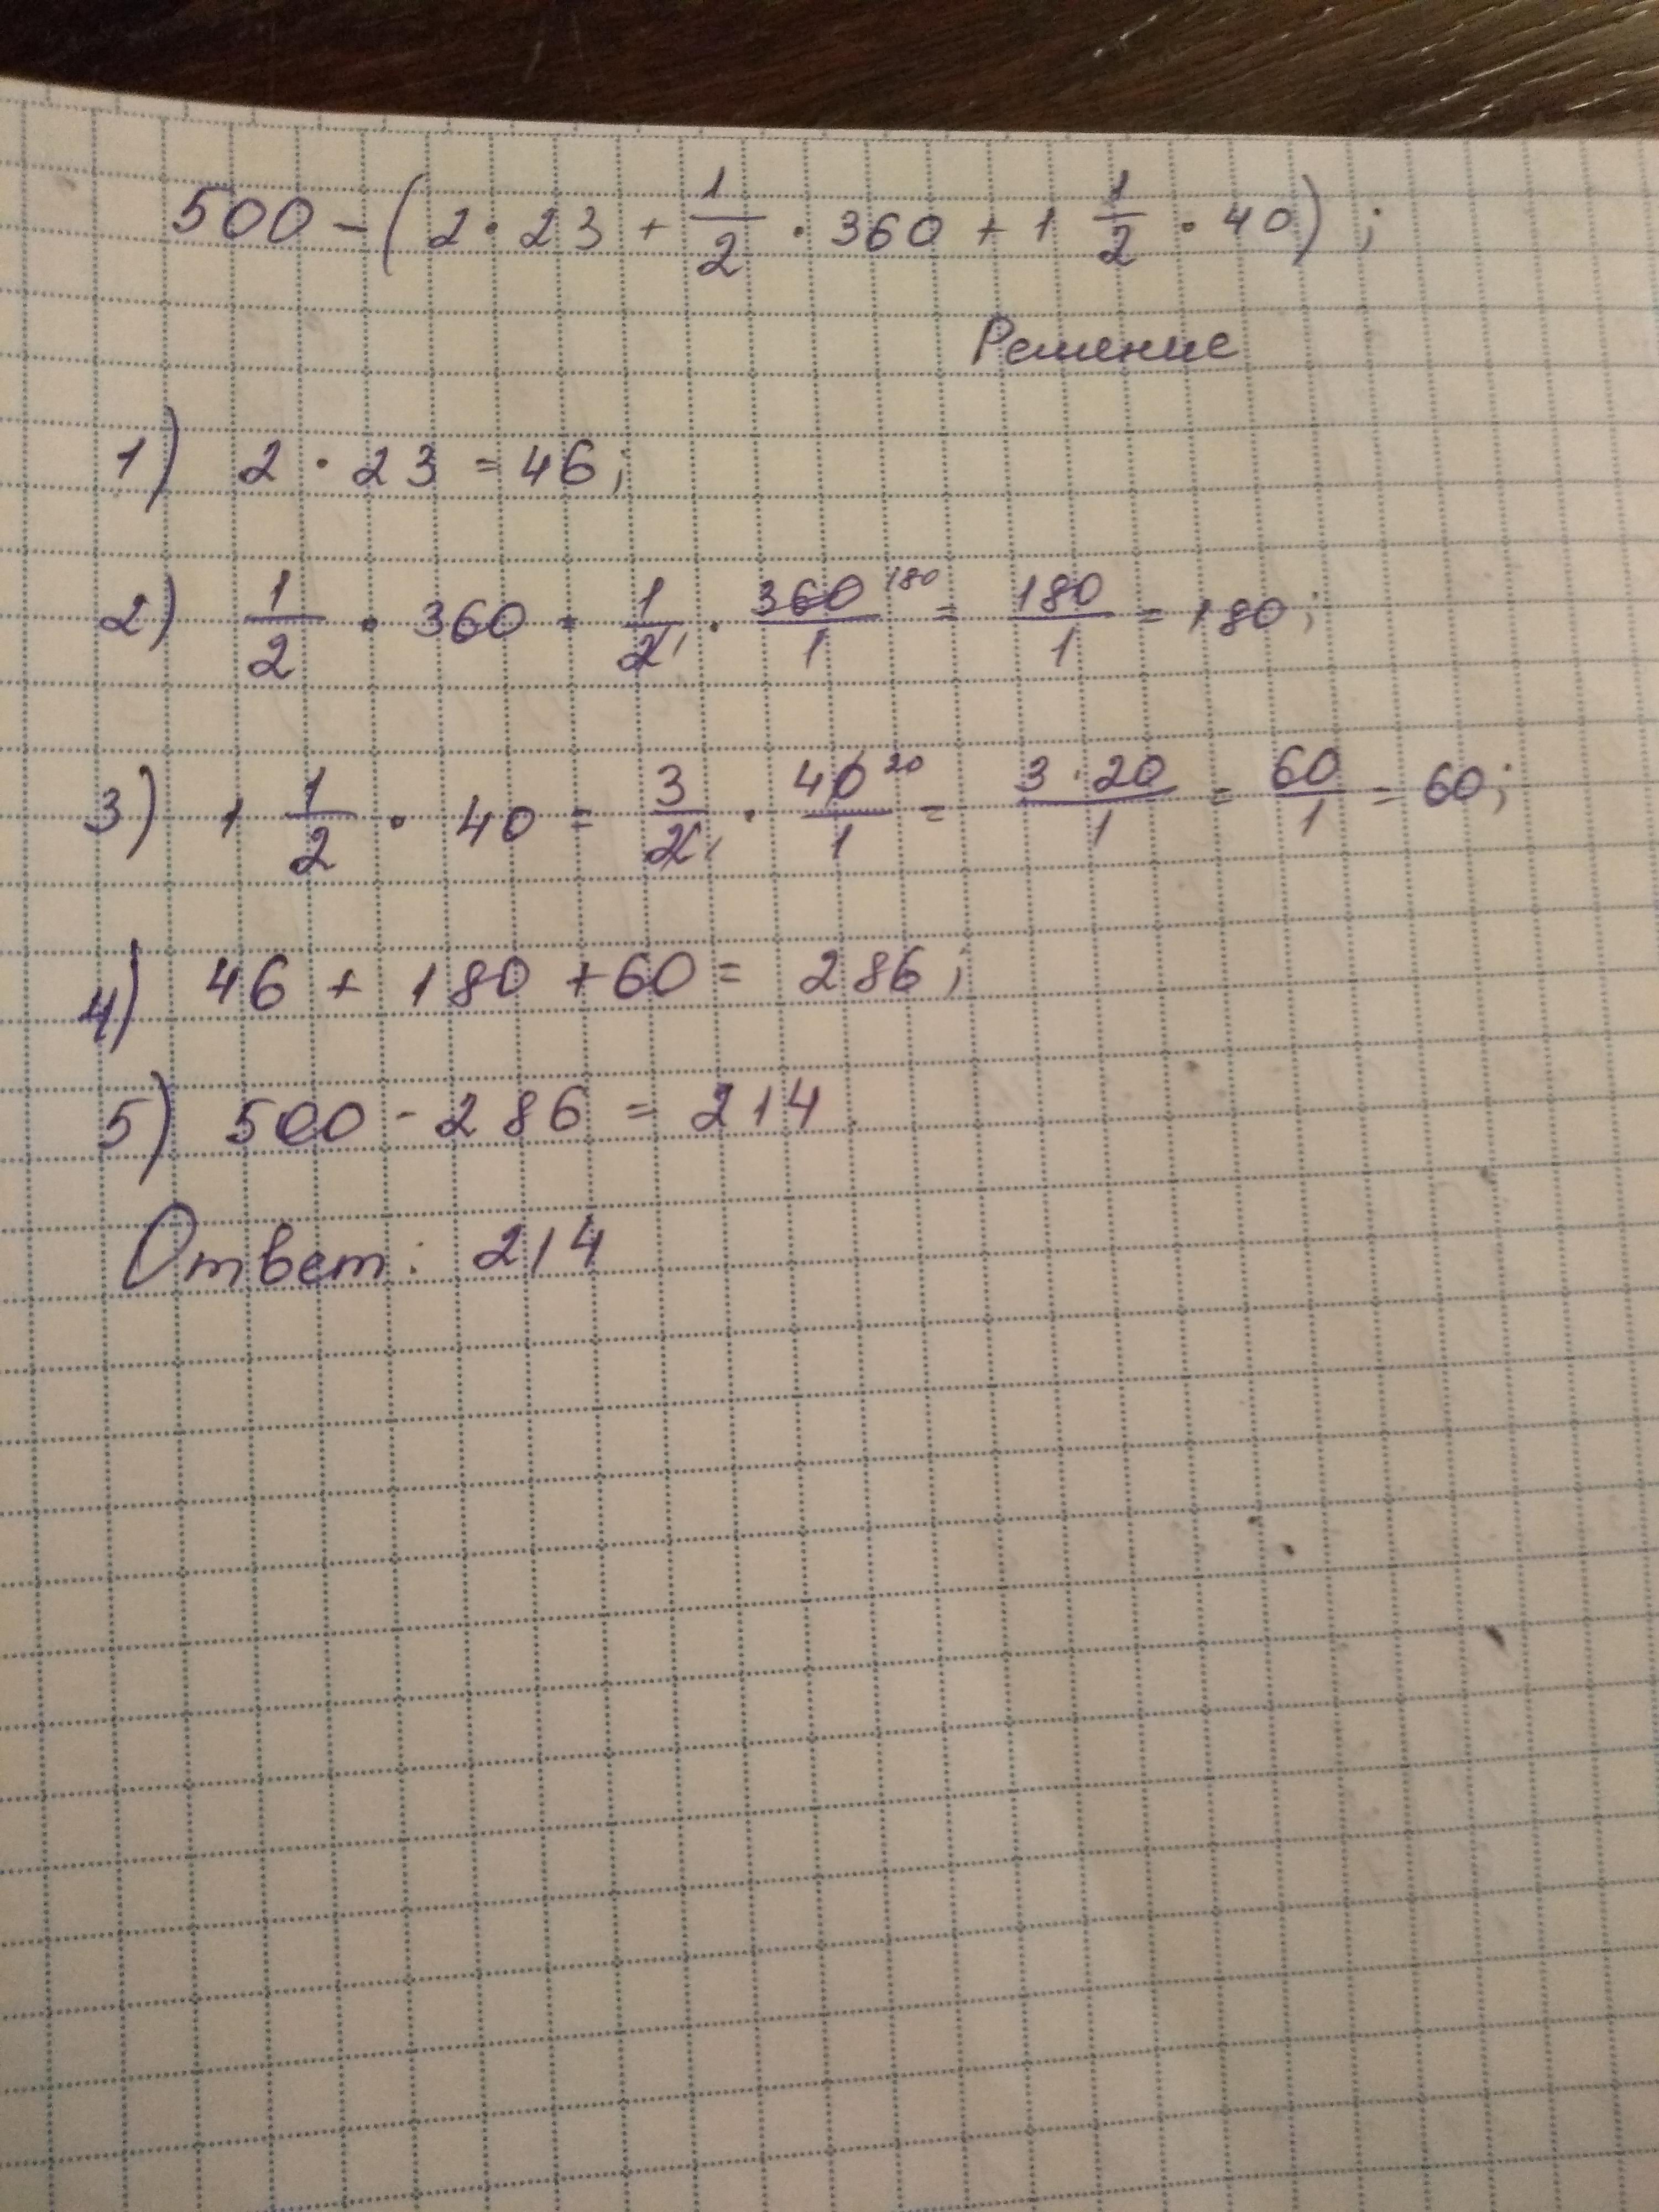 500 - ( 2 · 23 + 1/2 · 360 + 1 1/2 · 40 ) ;
Решение
1) 2 · 23 = 46;
2) 1/2 · 360 = 1/2 1 · 360/1 180 = 180/1 = 180;
3) 1 1/2 · 40 = 3/2 1 · 40/1 20 = 3 · 20/1 = 60/1 = 60;
4) 46 + 180 + 60 = 286;
5) 500 - 286 = 214.
Ответ: 214